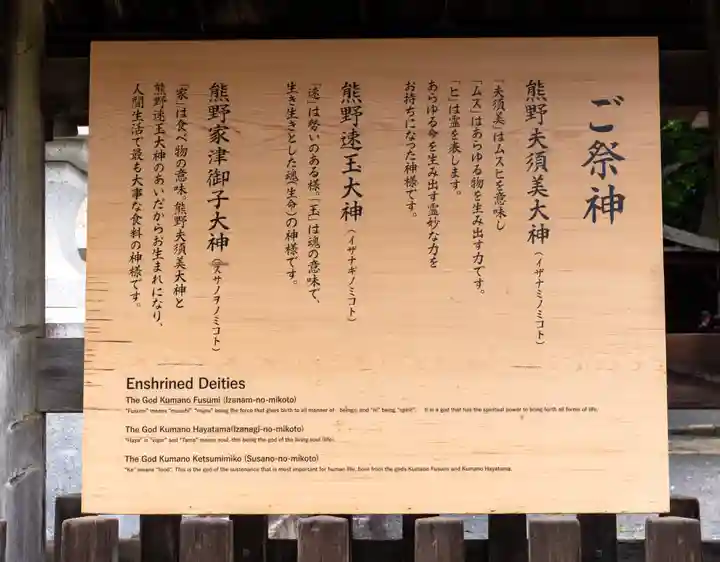 ご祭神
熊野夫須美大神(イザナミノミコト)
「夫須美」はムスヒを意味し
「ムス」はあらゆる物を生み出す力です。
「ヒ」は霊を表します。
あらゆる命を生み出す霊妙な力を
お持ちになった神様です。
熊野速玉大神(イザナギノミコト)
「速」は勢いのある様。「玉」は魂の意味で、
生き生きとした魂(生命)の神様です。
熊野家津御子大神(スサノヲノミコト)
「家」は食べ物の意味。熊野夫須美大神と
熊野速玉大神のあいだからお生まれになり、
人間生活で最も大事な食料の神様です。
Enshrined Deities
The God Kumano Fusumi (Izanam-no-mikoto)
"Fusumi" means "musuhi" "musu" being the force that gives birth to all manner of beings, and "hi" being "spirit". It is a god that has the spiritual power to bring birth all forms of life.
The God Kumano Hayatama(Izanagi-no-mikoto)
"Haya" is "vigor" and "Tama" means soul, this being the god of the living soul (life).
The God Kumano Ketsumimiko (Susano-no-mikoto)
"Ke" means "food". This is the god of the sustenance that is most important for human life, born from the gods Kumano Fusumi and Kumano Hayatama.